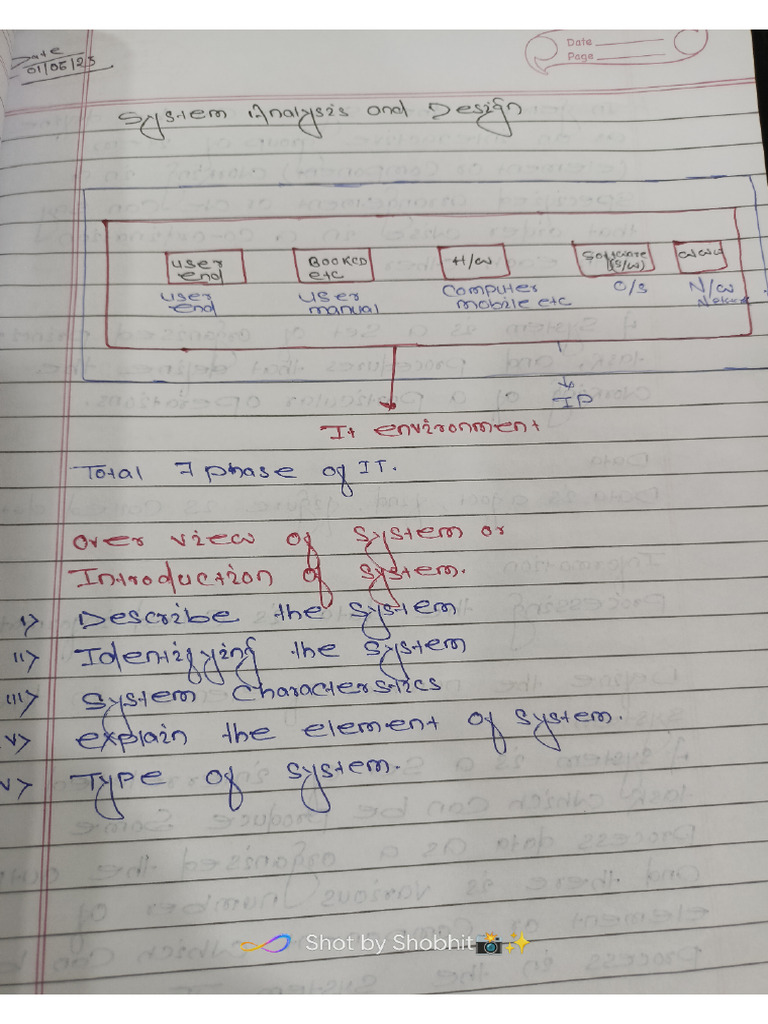 Date
01/05/25
Date
Page
System Analysis and Design
User end
BOOKCD etc
H/w
Software (S/w)
User end
User manual
Computer mobile etc
O/S
N/w
IP
It environment
Total 7 phase of IT.
Over view of System or
Introduction of System.
i> Describe the System
ii> Identifying the System
iii> System Characterstics
v> explain the element of System.
v> Type of System.
Shot by Shobhit📸✨